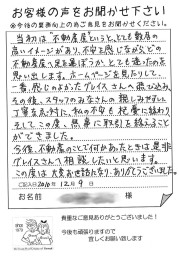 お客様の声をお聞かせ下さい
※今後の業務向上の為ご意見をお聞かせください。
当初は不動産屋というと、とても敷居の
高いイメージがあり、不安を感じながらどの
不動産屋へ足を運ぼうか、とても迷ったのを
思い出します。ホームページを見たりして、
一番感じのよかったグレイスさんへ飛び込み
その後、スタッフのみなさんの親しみやすい
丁寧な人がらに、私の不安も
そしてこの度、無事に取引を終えること
ができました。
今後、不動産のことで何かあったときは是非
グレイスさんへ相談したいと思います。
この度は大変お世話になり、ありがとうございました。
ご記入日 2010年12月9日
お名前
貴重なご意見ありがとうございました!
今後も頑張りますので
宜しくお願い致します